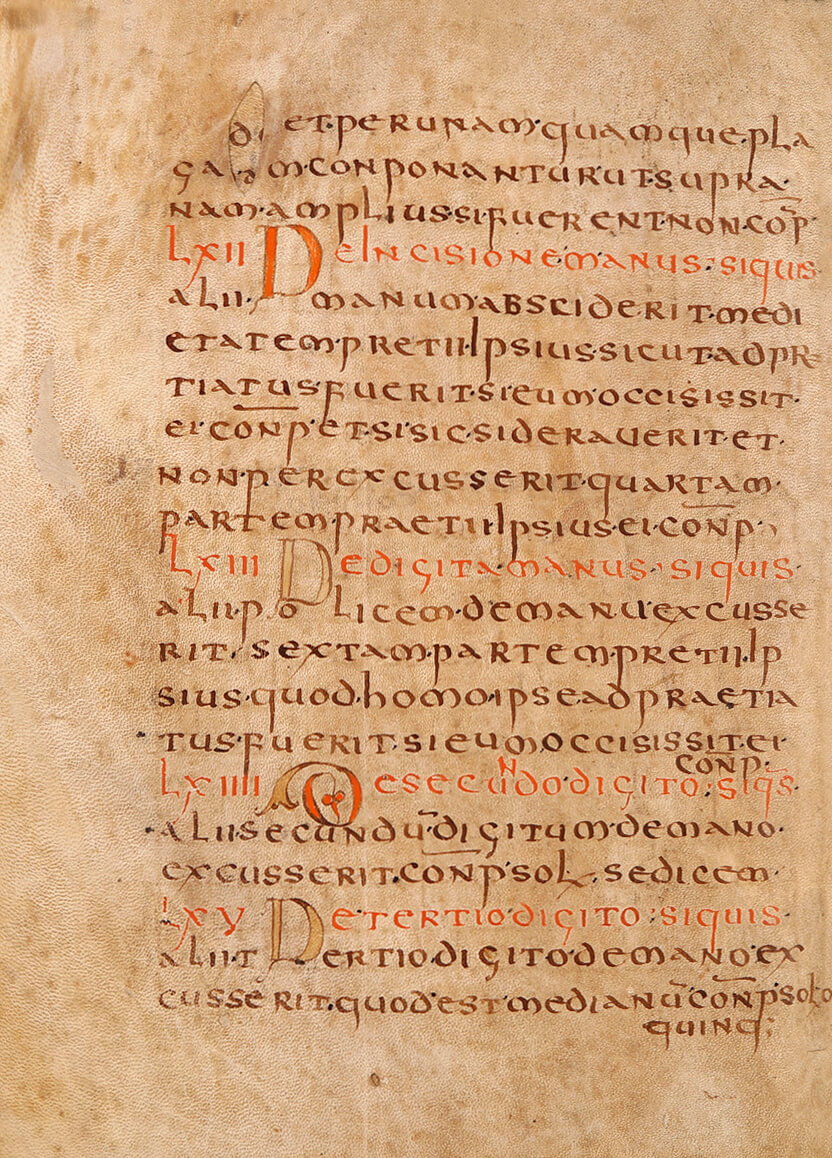 di et·per unam·quamque·pla
ga · m·conponantur ut·supra·
nam·amplius·si fuerent·non·co̅p·
LXII De Incisione·manus:siquis·
alii· manum absciderit·medi
etatem·pretii Ipsius·sicut·adpr&
tiatus·fuerit·si eum·occisissit·
ei·conp̅·et·si·sic·sideraverit·et·
non·per excusserit·quartam·
partem·praetii Ipsius·ei·conp̅·
LXIII De digita·manus·siquis·
alii·po llicem·de manu·excusse
rit·sextam·partem·pretii·Ip
sius·quod·homo·ipse adpraetia
tus·fuerit·si eum·occisissit ei
conp̅·
LXIIII De secundo·digito:siq̅s·
alii secundu̅·digitum·de mano·
excusserit·conp̅·sol·sedicem·
LXV De tertio·digito:siquis·
alii t ertio·digito·de mano·ex
cusserit·quod·est·medianu̅·conp̅·solo
quinq;